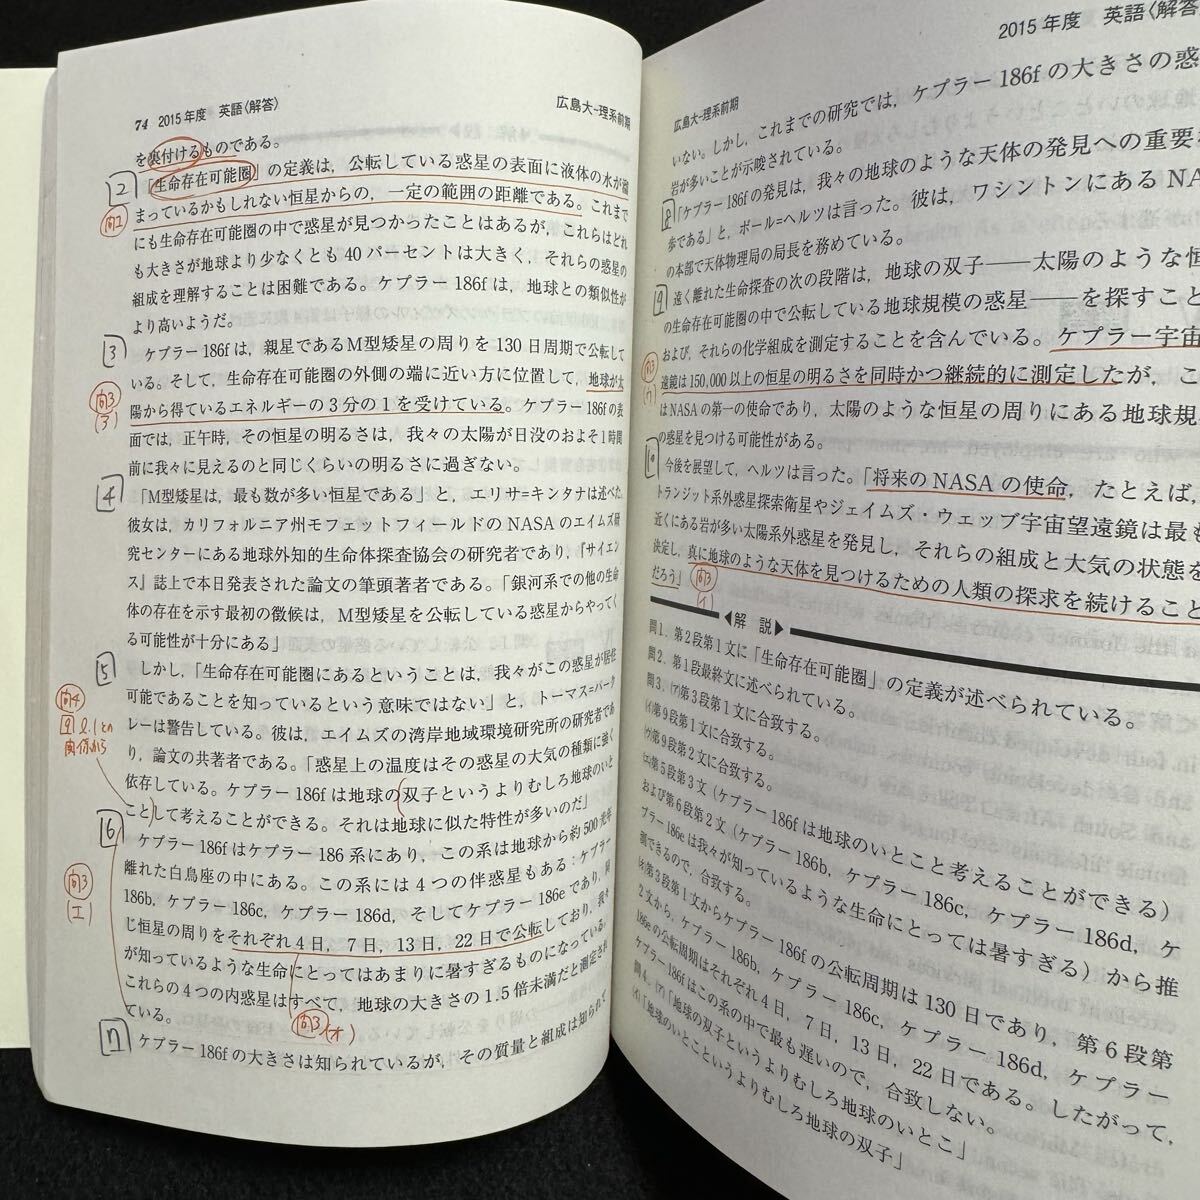 74 2015年度 英語〈解答〉 広島大-理系前期
を裏付けるものである。
2 「生命存在可能圏」の定義は，公転している惑星の表面に液体の水が溜
問1 まっているかもしれない恒星からの，一定の範囲の距離である。これまで
にも生命存在可能圏の中で惑星が見つかったことはあるが，これらはどれ
も大きさが地球より少なくとも 40 パーセントは大きく，それらの惑星の
組成を理解することは困難である。ケプラー 186f は，地球との類似性が
より高いようだ。
3 ケプラー 186f は，親星であるM型矮星の周りを 130 日周期で公転して
いる。そして，生命存在可能圏の外側の端に近い方に位置して，地球が太
問3 陽から得ているエネルギーの3分の1を受けている。ケプラー 186f の表
面では，正午時，その恒星の明るさは，我々の太陽が日没のおよそ1時間
前に我々に見えるのと同じくらいの明るさに過ぎない。
4 「M型矮星は，最も数が多い恒星である」と，エリサ=キンタナは述べた。
彼女は，カリフォルニア州モフェットフィールドの NASA のエイムズ研
究センターにある地球外知的生命体探査協会の研究者であり，『サイエン
ス』誌上で本日発表された論文の筆頭著者である。「銀河系での他の生命
体の存在を示す最初の徴候は，M型矮星を公転している惑星からやってく
る可能性が十分にある」
5 しかし，「生命存在可能圏にあるということは，我々がこの惑星が居住
問4 可能であることを知っているという意味ではない」と，トーマス=バーク
レーは警告している。彼は，エイムズの湾岸地域環境研究所の研究者であ
り，論文の共著者である。「惑星上の温度はその惑星の大気の種類に強く
依存している。ケプラー 186f は地球の双子というよりむしろ地球のいと
ことして考えることができる。それは地球に似た特性が多いのだ」
6 ケプラー 186f はケプラー 186 系にあり，この系は地球から約 500 光年
離れた白鳥座の中にある。この系には4つの伴惑星もある：ケプラー
問3 (エ) 186b，ケプラー 186c，ケプラー 186d，そしてケプラー 186e であり，同
じ恒星の周りをそれぞれ4日，7日，13日，22日で公転しており，我々
が知っているような生命にとってはあまりに暑すぎるものになっている。
これらの4つの内惑星はすべて，地球の大きさの 1.5 倍未満だと測定され
ている。
問3 (オ)
ケプラー 186f の大きさは知られているが，その質量と組成は知られて
2015年度 英語〈解答
広島大-理系前期
いない。しかし，これまでの研究では，ケプラー 186f の大きさの惑
岩が多いことが示唆されている。
8 「ケプラー 186f の発見は，我々の地球のような天体の発見への重要な
歩である」と，ポール=ヘルツは言った。彼は，ワシントンにある NA
の本部で天体物理局の局長を務めている。
9 遠く離れた生命探査の次の段階は，地球の双子――太陽のような恒
の生命存在可能圏の中で公転している地球規模の惑星――を探すこと
および，それらの化学組成を測定することを含んでいる。ケプラー宇宙
問3 遠鏡は150,000 以上の恒星の明るさを同時かつ継続的に測定したが，こ
はNASAの第一の使命であり，太陽のような恒星の周りにある地球規
の惑星を見つける可能性がある。
10 今後を展望して，ヘルツは言った。「将来の NASA の使命，たとえば，
トランジット系外惑星探索衛星やジェイムズ・ウェッブ宇宙望遠鏡は最も
近くにある岩が多い太陽系外惑星を発見し，それらの組成と大気の状態を
決定し，真に地球のような天体を見つけるための人類の探求を続けること
だろう」 問3 イ
◀解 説▶
問1．第2段第1文に「生命存在可能圏」の定義が述べられている。
問2．第1段最終文に述べられている。
問3．(ア)第3段第1文に合致する。
(イ)第9段第1文に合致する。
(ウ)第9段第2文に合致する。
(エ)第5段第3文（ケプラー 186f は地球のいとこと考えることができる）
および第6段第2文（ケプラー 186b，ケプラー 186c，ケプラー 186d，ケ
プラー 186e は我々が知っているような生命にとっては暑すぎる）から推
測できるので，合致する。
(オ)第3段第1文からケプラー 186f の公転周期は 130 日であり，第6段第
2文から，ケプラー 186b，ケプラー 186c，ケプラー 186d，ケプラー
186e の公転周期はそれぞれ4日，7日，13日，22日である。したがって，
ケプラー 186f はこの系の中で最も遅いので，合致しない。
問4．(ア)「地球の双子というよりむしろ地球のいとこ」
(イ)「地球のいとこというよりむしろ地球の双子」